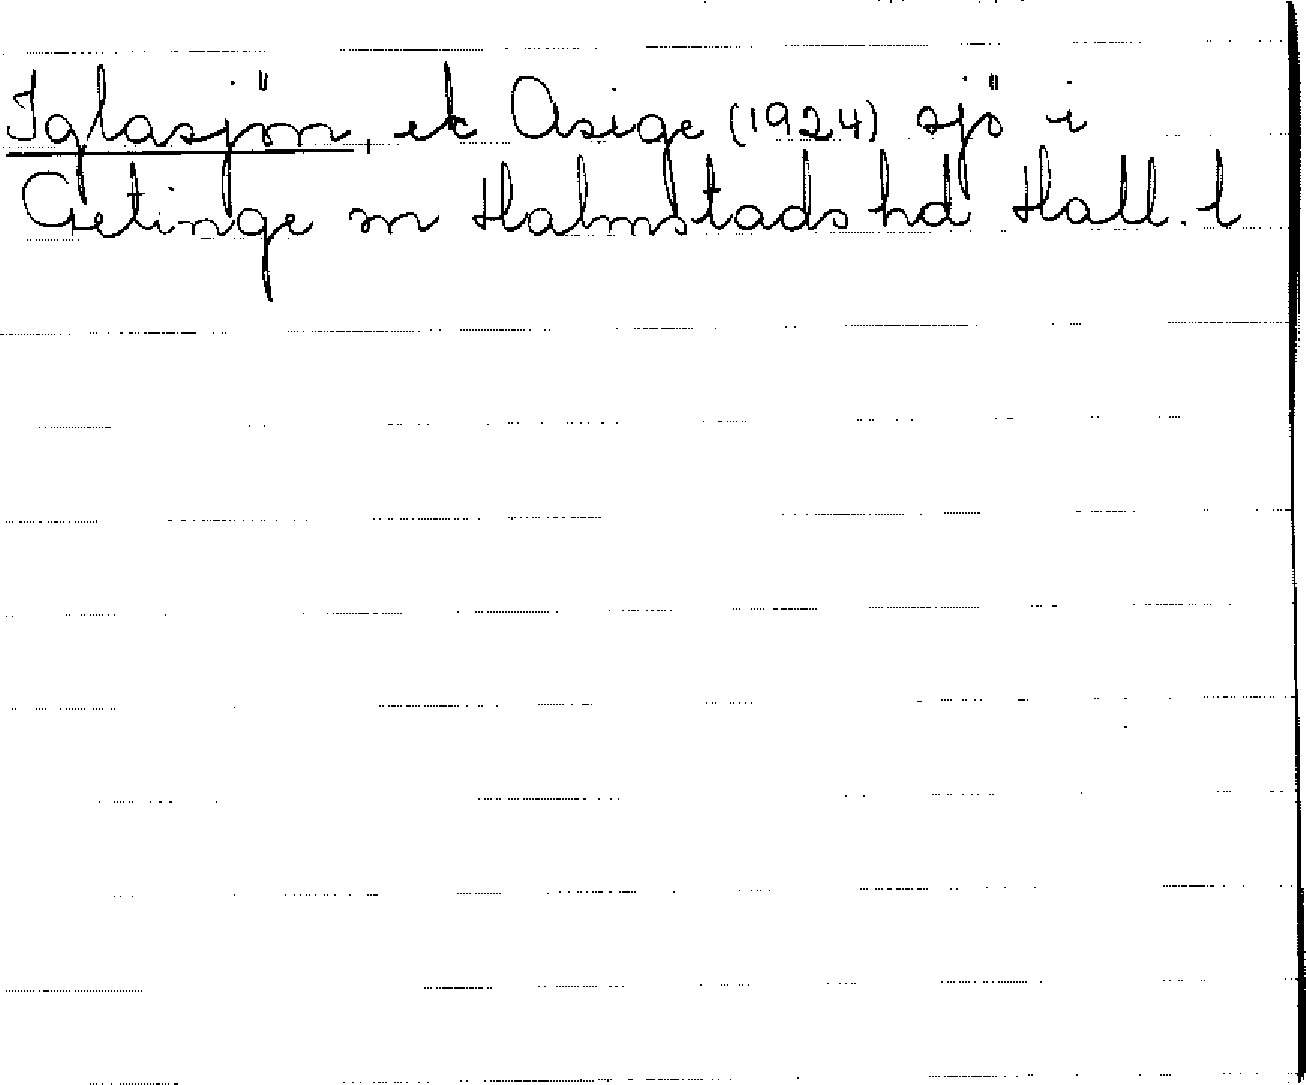 Iglasjön, ek Asige (1924) sjö i
Getinge sn Halmstads hd Hall. l